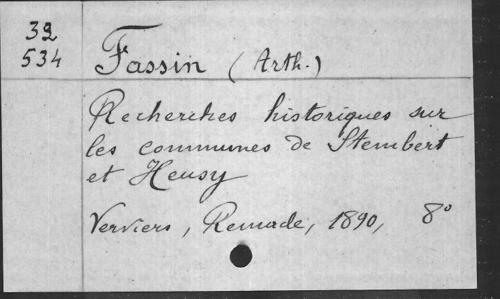 32
534
Fassin (Arth.)
Recherches historiques sur
les communes de Stembert
et Heusy
Verviers, Remacle, 1890, 8°